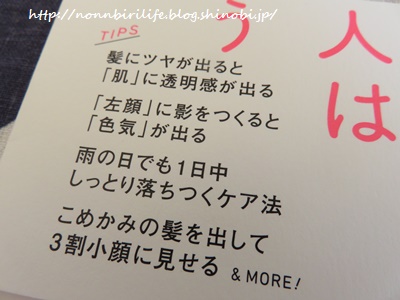 http://nonnbirilife.blog.shinobi.jp/
人は
う
TIPS
髪にツヤが出ると
「肌」に透明感が出る
「左顔」に影をつくると
「色気」が出る
雨の日でも1日中
しっとり落ちつくケア法
こめかみの髪を出して
3割小顔に見せる & MORE!